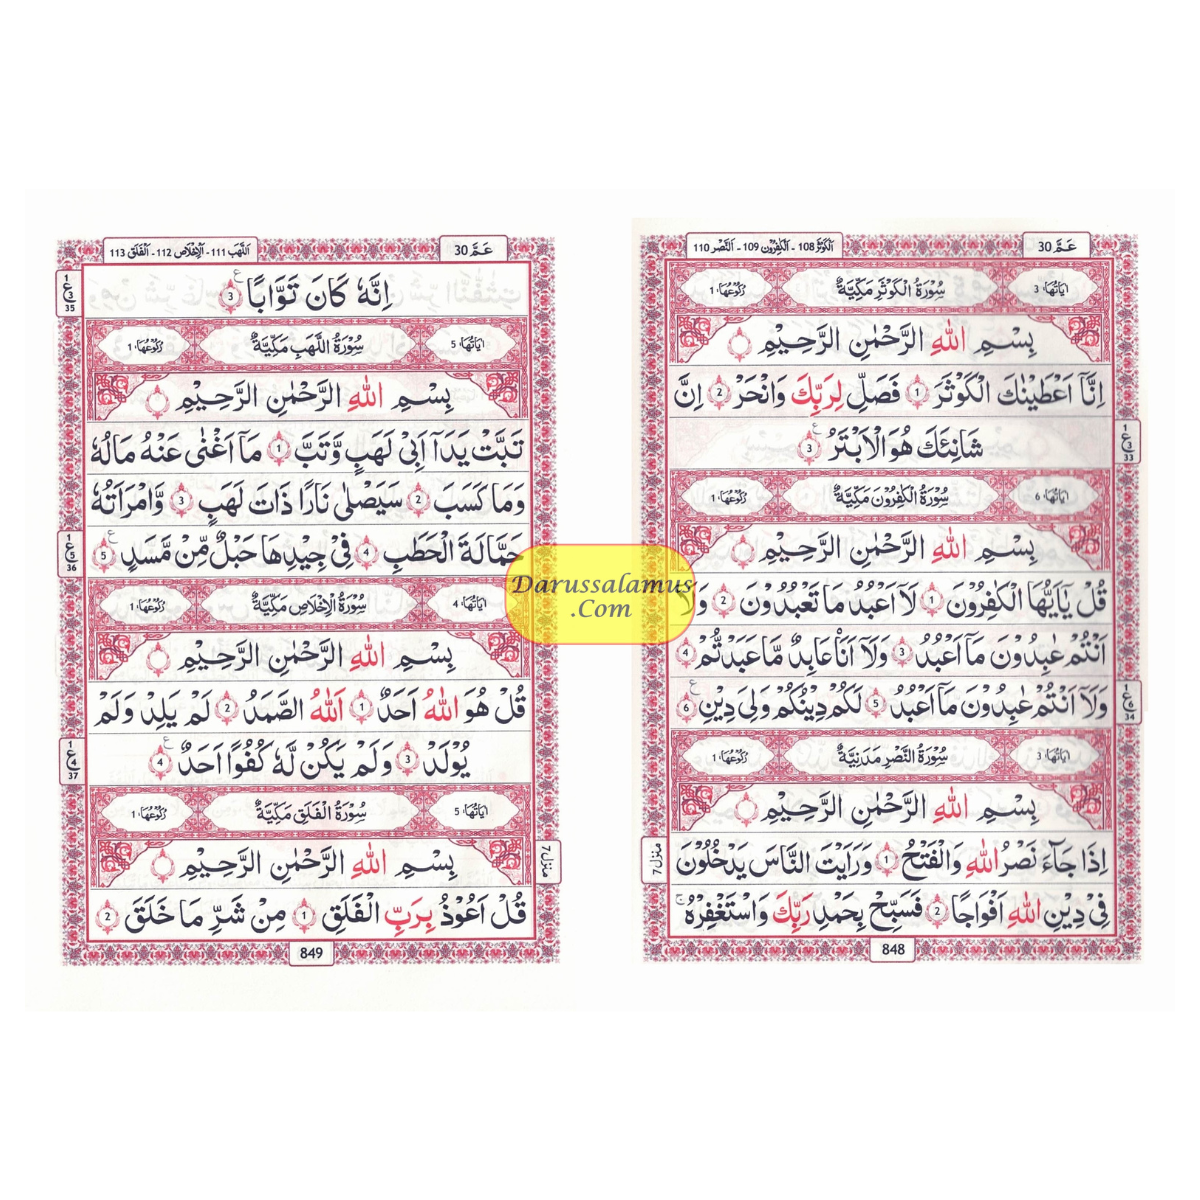 عَمَّ 30
اَلْكَوْثَرُ 108 - اَلْكٰفِرُوْن 109 - اَلنَّصْر 110
اٰيَاتُهَا: 3 سُوْرَةُ الْكَوْثَرِ مَكِّيَّةٌ رُكُوْعُهَا: 1
بِسْمِ اللّٰهِ الرَّحْمٰنِ الرَّحِيْمِ
اِنَّآ اَعْطَيْنٰكَ الْكَوْثَرَ 1 فَصَلِّ لِرَبِّكَ وَانْحَرْ 2 اِنَّ
شَانِئَكَ هُوَ الْاَبْتَرُ 3
1 ع 3 33
اٰيَاتُهَا: 6 سُوْرَةُ الْكٰفِرُوْنَ مَكِّيَّةٌ رُكُوْعُهَا: 1
بِسْمِ اللّٰهِ الرَّحْمٰنِ الرَّحِيْمِ
قُلْ يٰٓاَيُّهَا الْكٰفِرُوْنَ 1 لَآ اَعْبُدُ مَا تَعْبُدُوْنَ 2
اَنْتُمْ عٰبِدُوْنَ مَآ اَعْبُدُ 3 وَلَآ اَنَا۠ عَابِدٌ مَّا عَبَدْتُّمْ 4
وَلَآ اَنْتُمْ عٰبِدُوْنَ مَآ اَعْبُدُ 5 لَكُمْ دِيْنُكُمْ وَلِيَ دِيْنِ 6
1 ع 6 34
اٰيَاتُهَا: 3 سُوْرَةُ النَّصْرِ مَدَنِيَّةٌ رُكُوْعُهَا: 1
بِسْمِ اللّٰهِ الرَّحْمٰنِ الرَّحِيْمِ
اِذَا جَآءَ نَصْرُ اللّٰهِ وَالْفَتْحُ 1 وَرَاَيْتَ النَّاسَ يَدْخُلُوْنَ
منزل 7
فِيْ دِيْنِ اللّٰهِ اَفْوَاجًا 2 فَسَبِّحْ بِحَمْدِ رَبِّكَ وَاسْتَغْفِرْهُ
848
عَمَّ 30
اَللَّهَب 111 - اَلْاِخْلَاص 112 - اَلْفَلَق 113
اِنَّهٗ كَانَ تَوَّابًا 3
1 ع 3 35
اٰيَاتُهَا: 5 سُوْرَةُ اللَّهَبِ مَكِّيَّةٌ رُكُوْعُهَا: 1
بِسْمِ اللّٰهِ الرَّحْمٰنِ الرَّحِيْمِ
تَبَّتْ يَدَآ اَبِيْ لَهَبٍ وَّتَبَّ 1 مَآ اَغْنٰى عَنْهُ مَالُهٗ
وَمَا كَسَبَ 2 سَيَصْلٰى نَارًا ذَاتَ لَهَبٍ 3 وَّامْرَاَتُهٗ
حَمَّالَةَ الْحَطَبِ 4 فِيْ جِيْدِهَا حَبْلٌ مِّنْ مَّسَدٍ 5
1 ع 5 36
اٰيَاتُهَا: 4 سُوْرَةُ الْاِخْلَاصِ مَكِّيَّةٌ رُكُوْعُهَا: 1
بِسْمِ اللّٰهِ الرَّحْمٰنِ الرَّحِيْمِ
قُلْ هُوَ اللّٰهُ اَحَدٌ 1 اَللّٰهُ الصَّمَدُ 2 لَمْ يَلِدْ وَلَمْ
يُوْلَدْ 3 وَلَمْ يَكُنْ لَّهٗ كُفُوًا اَحَدٌ 4
1 ع 4 37
اٰيَاتُهَا: 5 سُوْرَةُ الْفَلَقِ مَكِّيَّةٌ رُكُوْعُهَا: 1
بِسْمِ اللّٰهِ الرَّحْمٰنِ الرَّحِيْمِ
منزل 7
قُلْ اَعُوْذُ بِرَبِّ الْفَلَقِ 1 مِنْ شَرِّ مَا خَلَقَ 2
849
Darussalamus
.Com